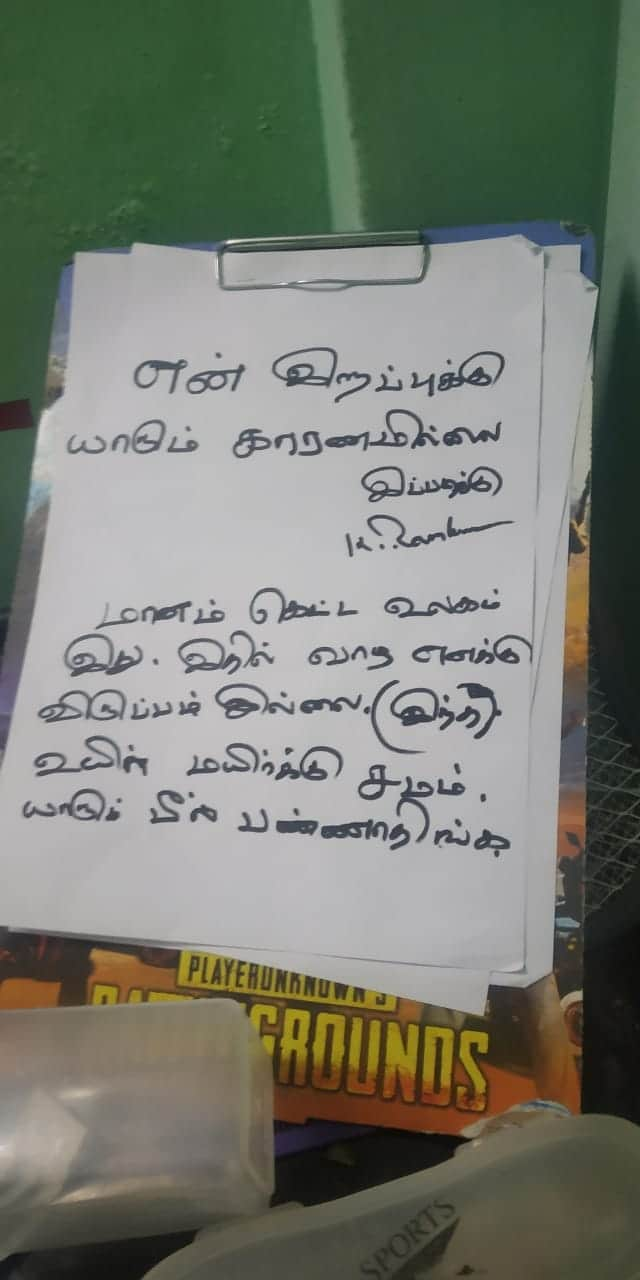 என் இறப்புக்கு
யாரும் காரணமில்லை
இப்படிக்கு
மானம் கெட்ட உலகம்
இது. இதில் வாழ எனக்கு
விருப்பம் இல்லை. (இந்த)
உயிர் மயிர்க்கு சமம்.
யாரும் பீல் பண்ணாதிங்க
PLAYERUNKNOWN'S
BATTLEGROUNDS
SPORTS